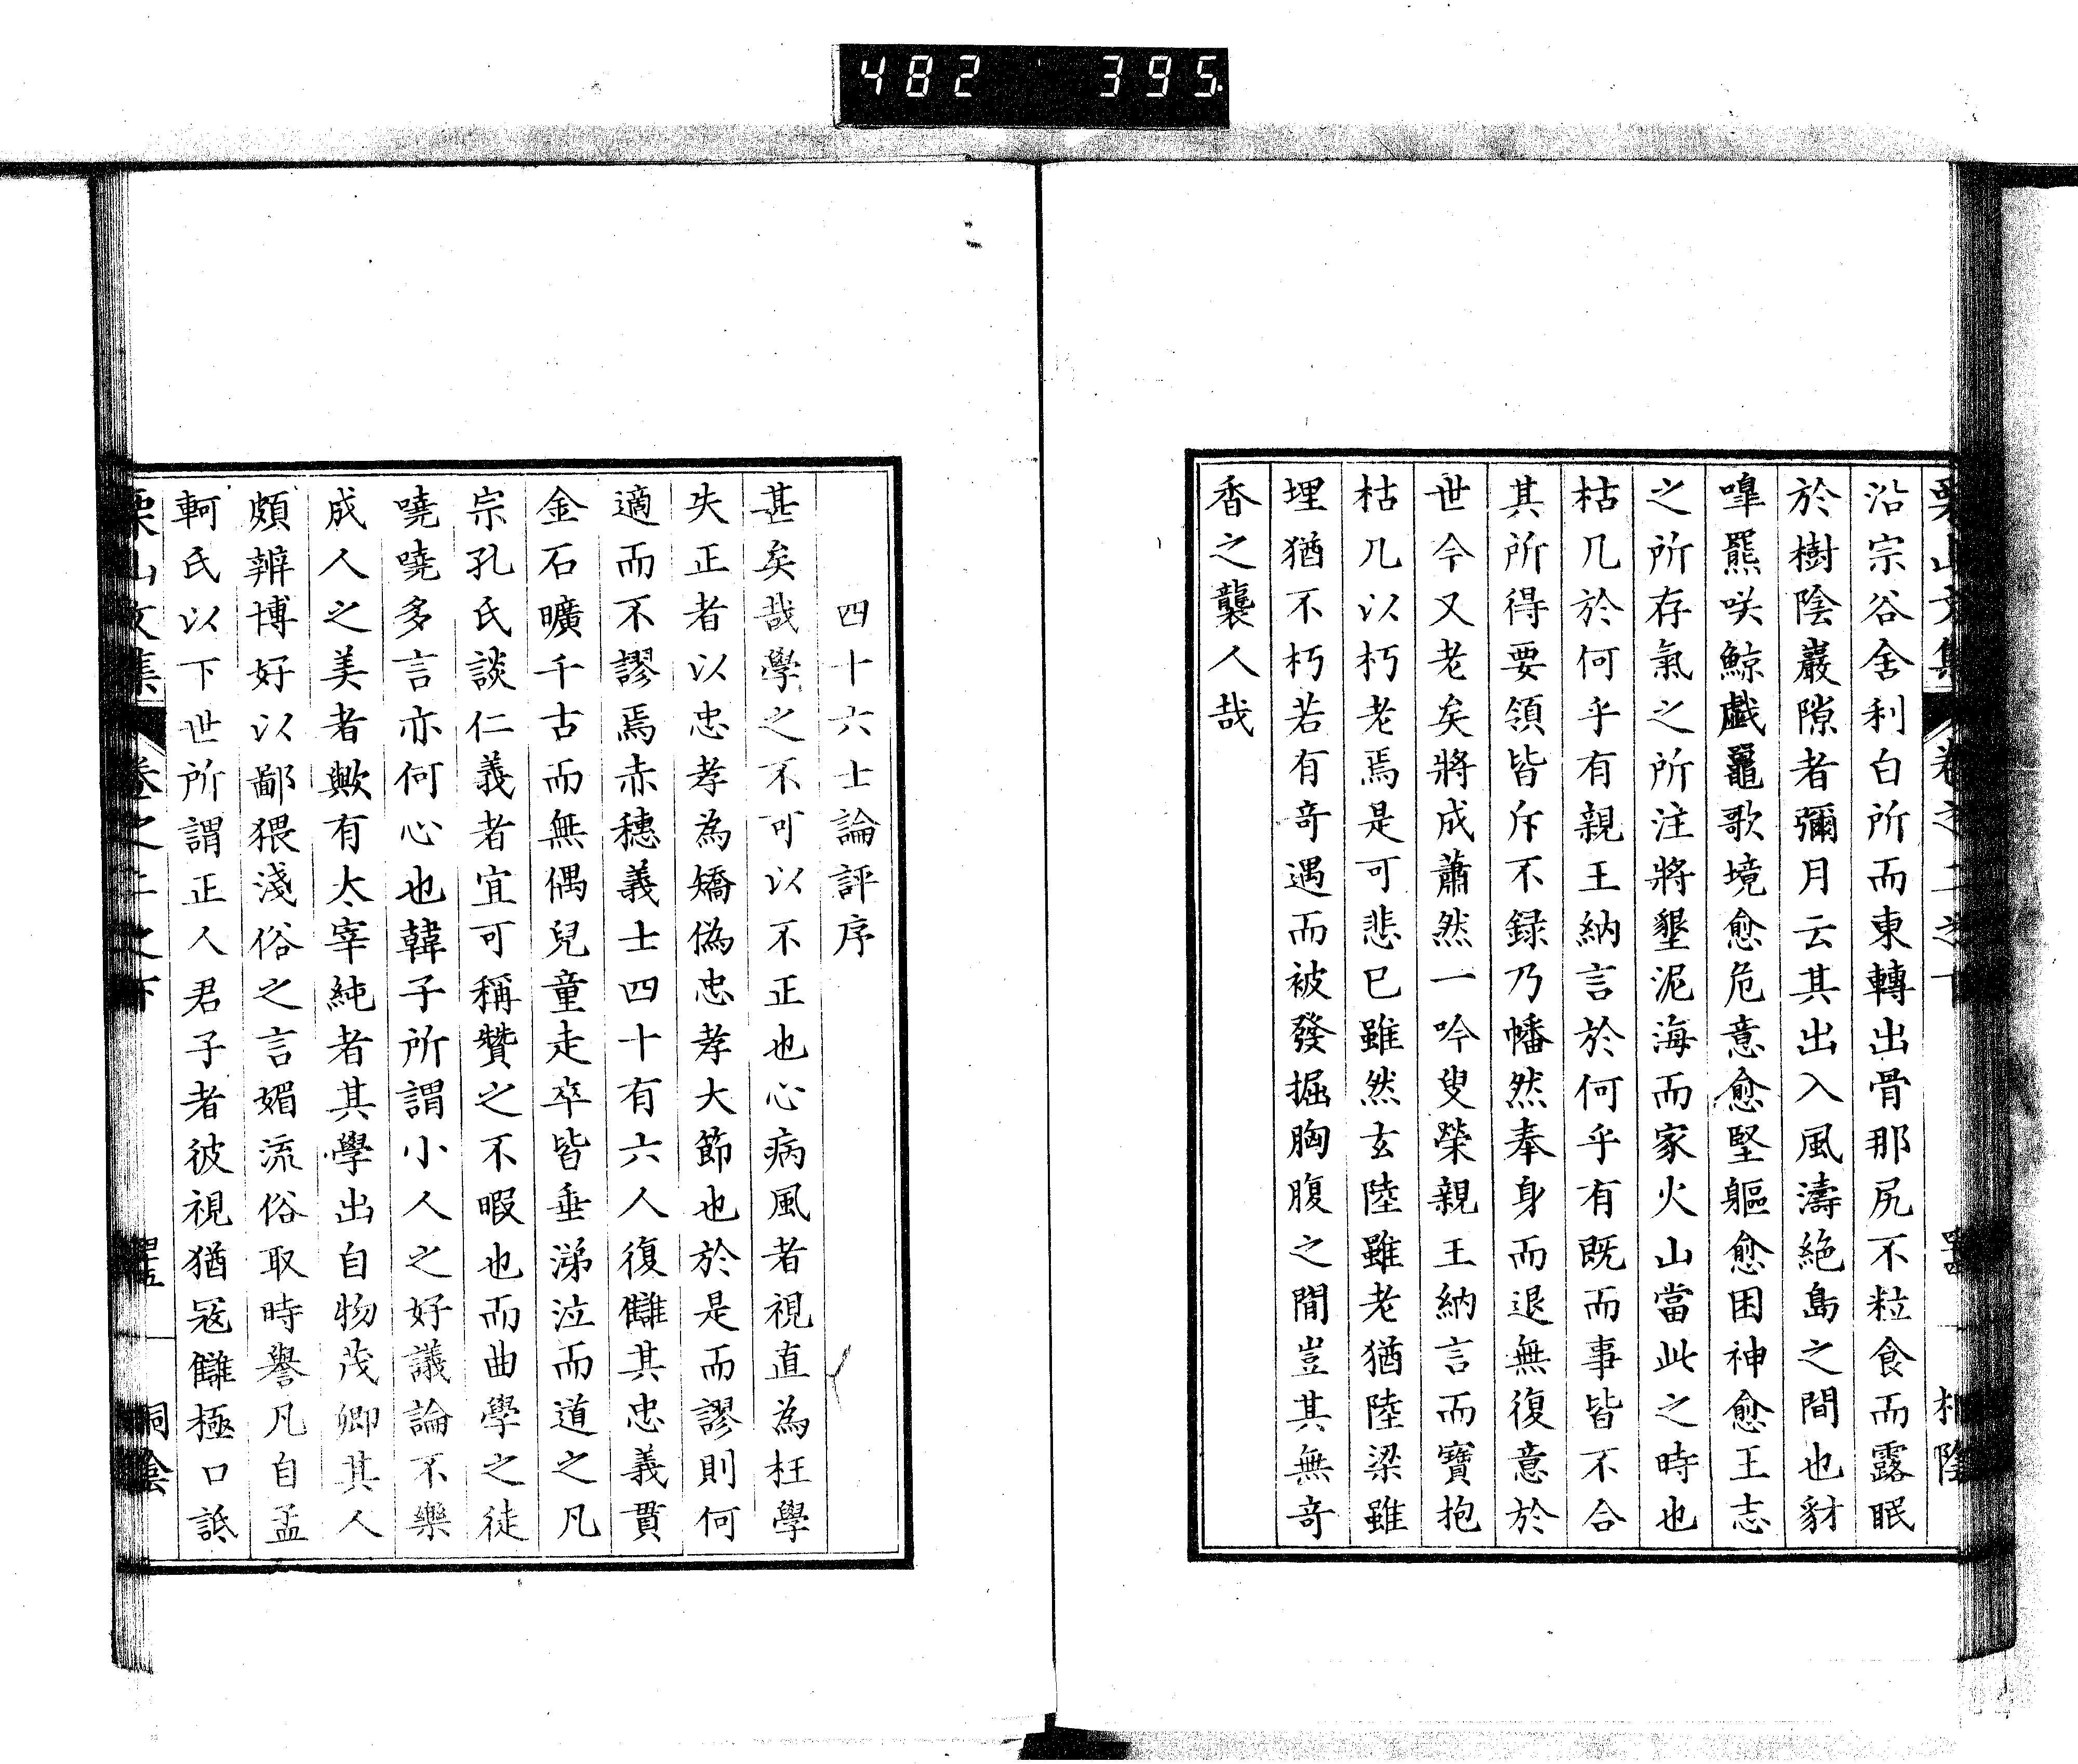 482 395.
沿宗谷舍利白所而東轉出骨那尻不粒食而露眠
於樹陰巖隙者彌月云其出入風濤絶島之間也豺
嘷羆咲鯨戲鼉歌境愈危意愈堅軀愈困神愈王志
之所存氣之所注將墾泥海而家火山當此之時也
枯几於何乎有親王納言於何乎有既而事皆不合
其所得要領皆斥不録乃幡然奉身而退無復意於
世今又老矣將成蕭然一吟叟榮親王納言而寶抱
枯几以朽老焉是可悲已雖然玄陸雖老猶陸梁雖
埋猶不朽若有竒遇而被發掘胸腹之間豈其無竒
香之襲人哉
四十六士論評序
甚矣哉學之不可以不正也心病風者視直為枉學
失正者以忠孝為矯僞忠孝大節也於是而謬則何
適而不謬焉赤穗義士四十有六人復讎其忠義貫
金石曠千古而無偶兒童走卒皆垂涕泣而道之凡
宗孔氏談仁義者宜可稱贊之不暇也而曲學之徒
嘵嘵多言亦何心也韓子所謂小人之好議論不樂
成人之美者歟有太宰純者其學出自物茂卿其人
頗辨博好以鄙猥淺俗之言媚流俗取時譽凡自孟
軻氏以下世所謂正人君子者彼視猶冦讎極口詆
栗山文集 卷之二之下
桐陰